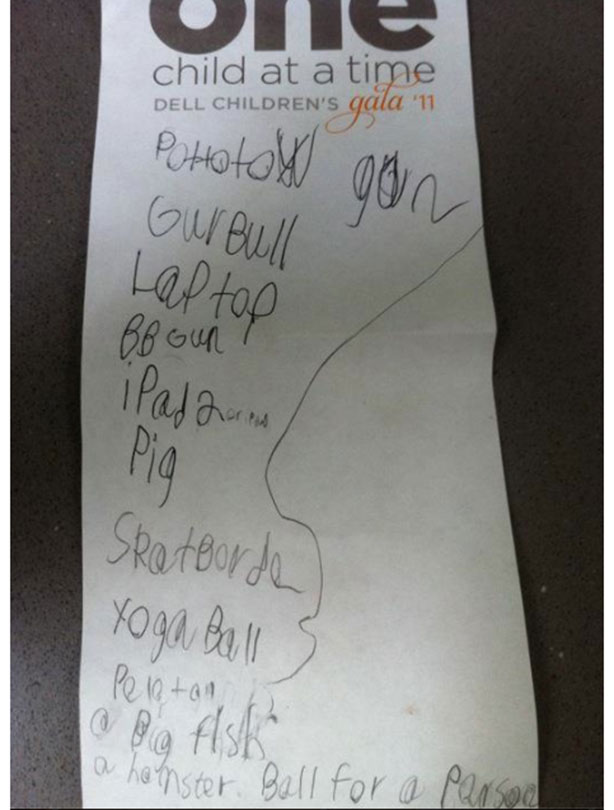 one
child at a time
DELL CHILDREN'S gala '11
Pottotow gun
Gurbull
Laptop
BB Gun
iPad 2 or iPad
Pig
Skatborde
Yoga Ball
a Big fish
a hamster. Ball for a Person